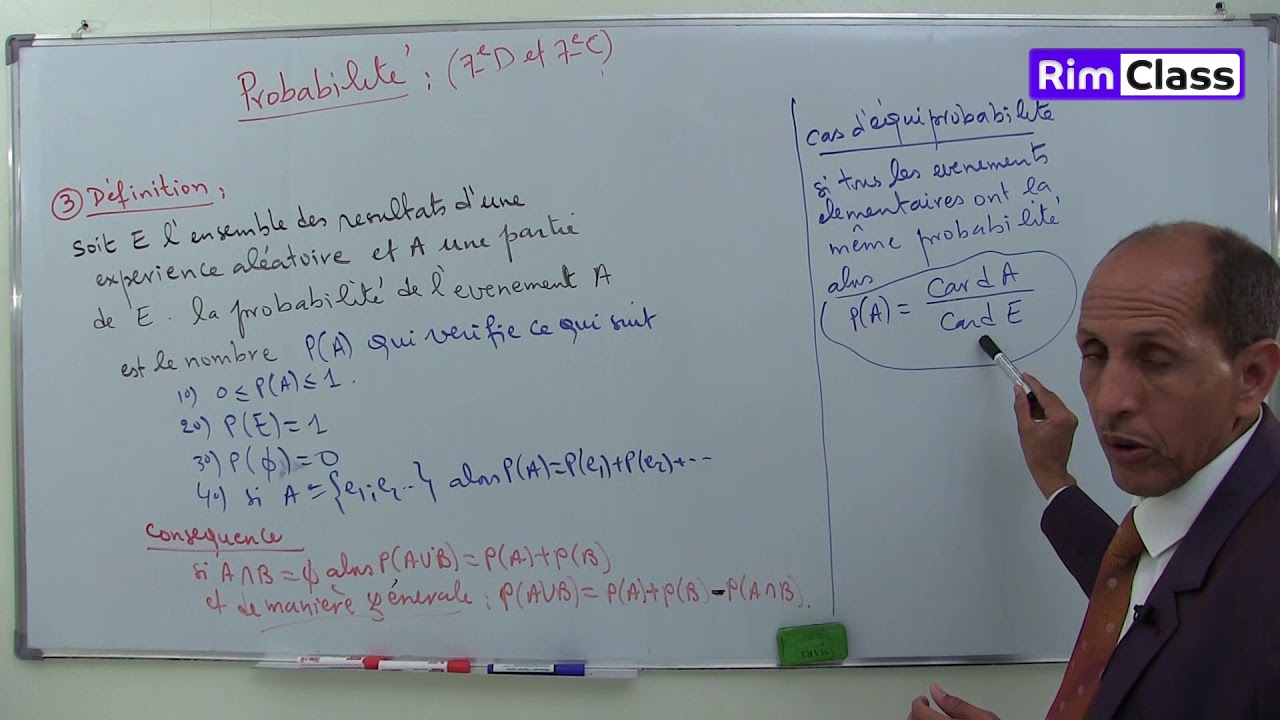 Probabilité : (7e D et 7e C)
③ Définition :
Soit E l'ensemble des resultats d'une
experience aléatoire et A une partie
de E. la probabilité de l'evenement A
est le nombre P(A) qui verifie ce qui suit
1o) 0 ≤ P(A) ≤ 1.
2o) P(E) = 1
3o) P(ϕ) = 0
4o) si A = {e1; e2 ..} alors P(A) = P(e1) + P(e2) + ...
Consequence
si A ∩ B = ϕ alors P(A∪B) = P(A) + P(B)
et de manière génerale : P(A∪B) = P(A) + P(B) - P(A∩B).
Rim Class
Cas d'équiprobabilité
si tous les evenements
elementaires ont la
même probabilité
alors
P(A) = Card A / Card E